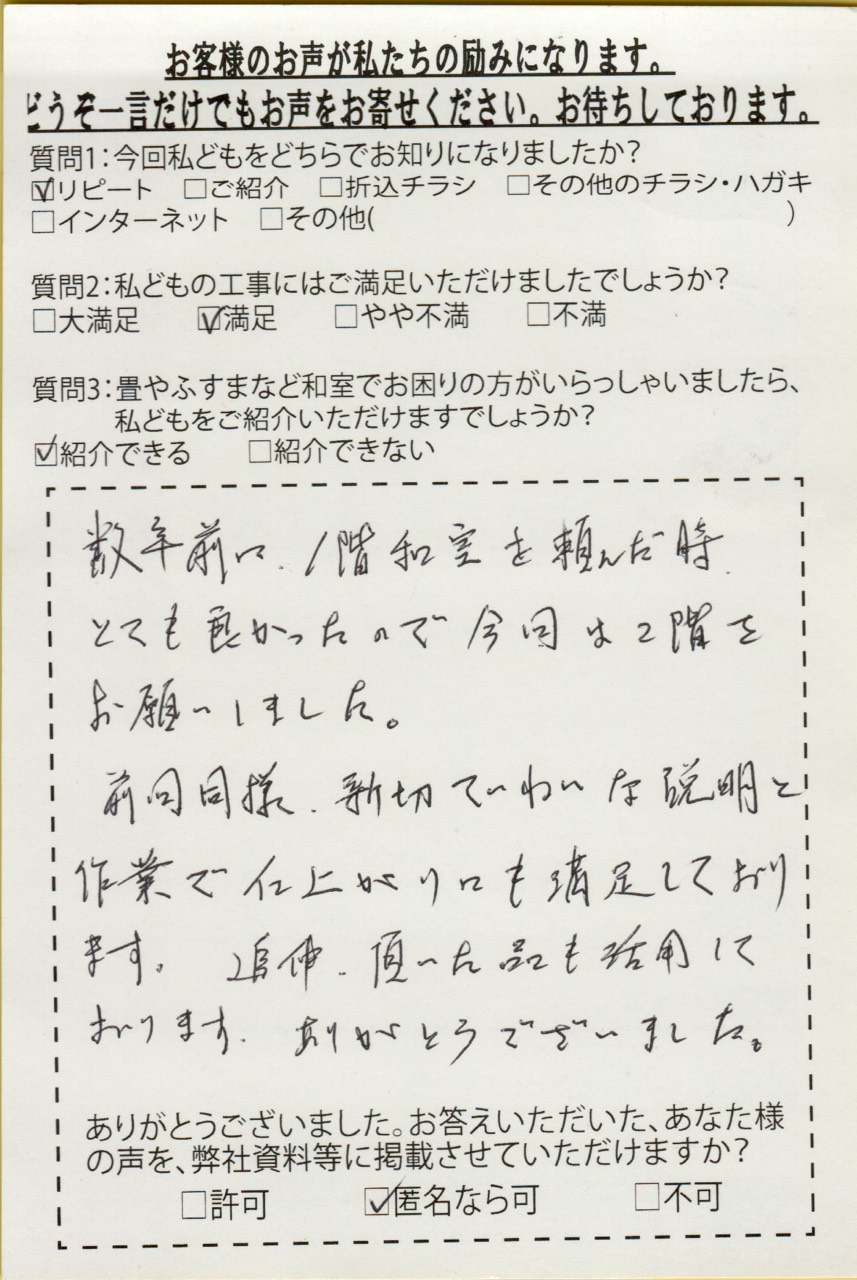 お客様のお声が私たちの励みになります。
どうぞ一言だけでもお声をお寄せください。お待ちしております。
質問1：今回私どもをどちらでお知りになりましたか？
☑リピート　□ご紹介　□折込チラシ　□その他のチラシ・ハガキ
□インターネット　□その他(　　　　　　　　　　)
質問2：私どもの工事にはご満足いただけましたでしょうか？
□大満足　☑満足　□やや不満　□不満
質問3：畳やふすまなど和室でお困りの方がいらっしゃいましたら、
私どもをご紹介いただけますでしょうか？
☑紹介できる　□紹介できない
数年前に、1階和室を頼んだ時、
とても良かったので今回は2階を
お願いしました。
前回同様、新切ていねいな説明と
作業で仕上がりにも満足しており
ます。追伸、頂いた品も活用して
おります。ありがとうございました。
ありがとうございました。お答えいただいた、あなた様
の声を、弊社資料等に掲載させていただけますか？
□許可　☑匿名なら可　□不可